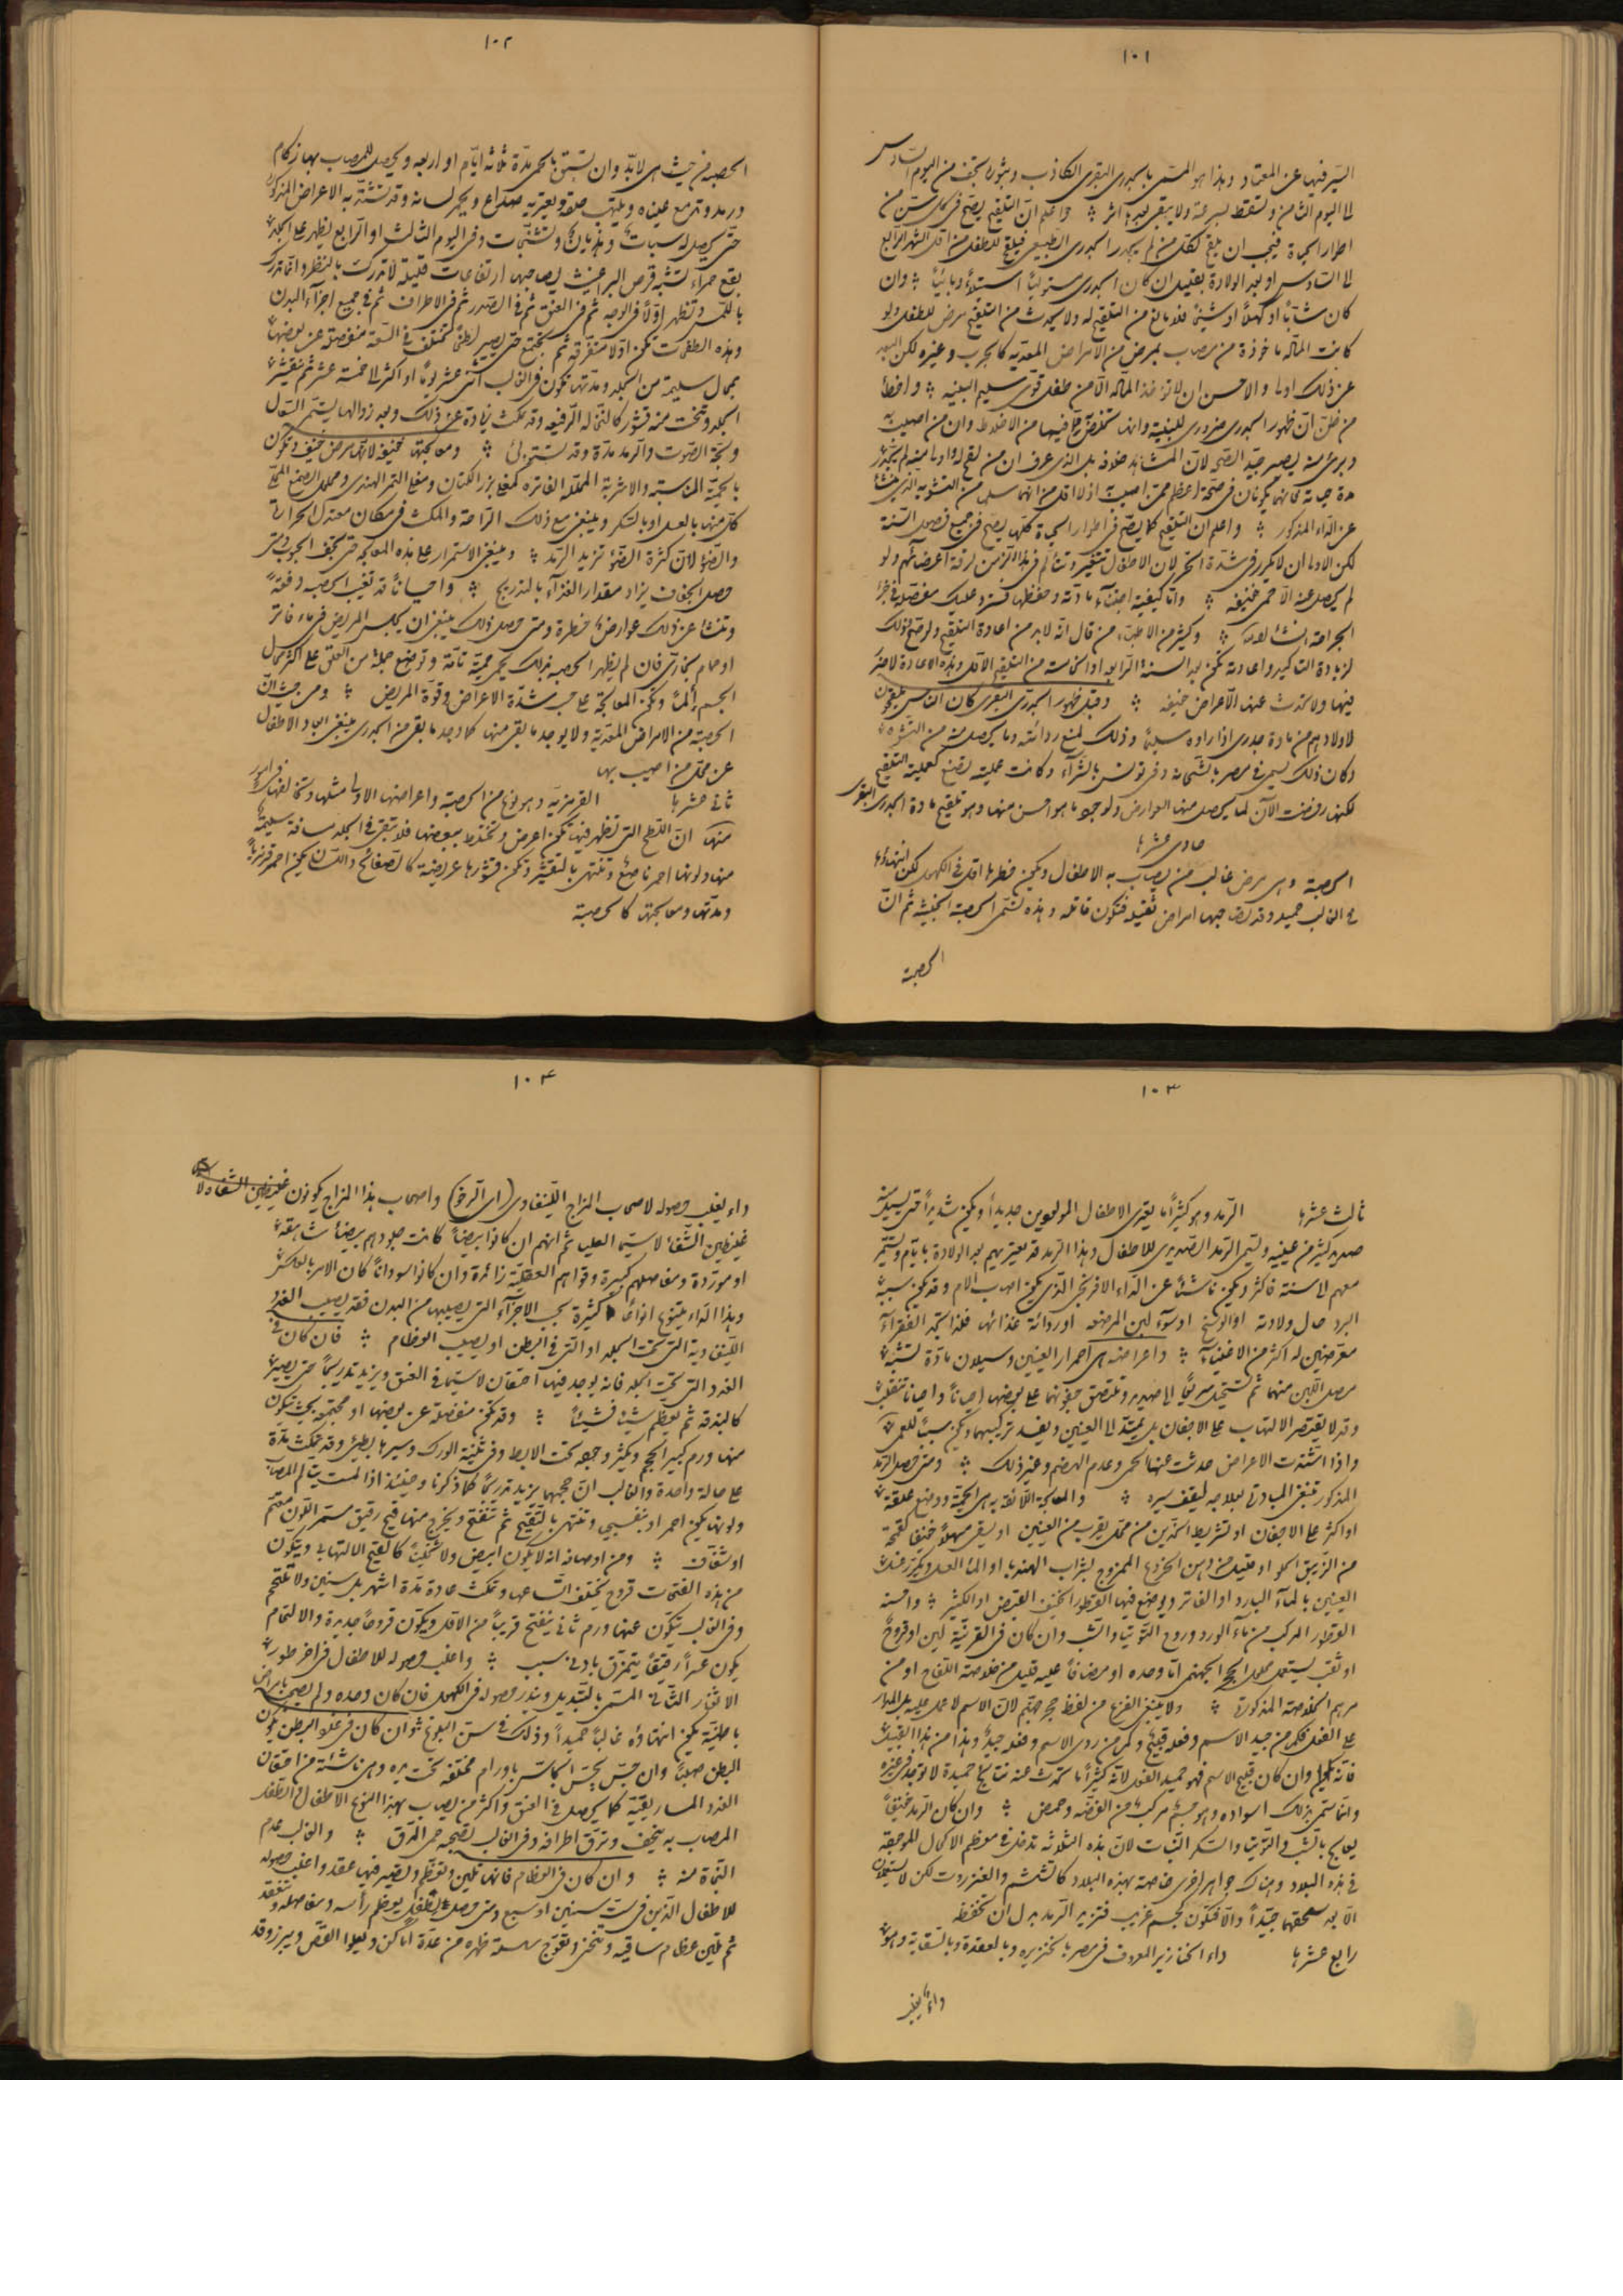 ١٠١
السير فيها عن المعتاد وهذا هو المسمى بالجدري البقري الكاذب وبثوره تجف من اليوم السادس
الى اليوم الثامن وتسقط بسرعة ولا يبقى بعدها اثر واعلم ان التلقيح يصح في كل سن من
اطوار الحياة فيجب ان يلقح لكل من لم يجدر الجدري الطبيعي فيلقح للطفل من اول الشهر الرابع
الى السادس او بعد الولادة بقليل ان كان الجدري مستوليا استيلاء وبائيا وان
كان شابا او كهلا او شيخا فلا مانع من التلقيح له ولا يحدث من التلقيح مرض للطفل ولو
كانت المادة ماخوذة من مصاب بمرض من الامراض المعدية كالجرب وغيره لكن البعد
عن ذلك اولى والاحسن ان لا تؤخذ المادة الا من طفل قوي سليم البنية واخطأ
من ظن ان ظهور الجدري ضروري للبنية وانها تتخلص به مما فيها من الاخلاط وان من اصيب به
وبرئ منه يصير جيد الصحة لان المشاهد خلافه بل الذي عرف ان من لقح له اولا منه لم يتجدر
مدة حياته
عن الداء المذكور واعلم ان التلقيح كما يصح في اطوار الحياة كلها يصح في جميع فصول السنة
لكن الاولى ان لا يكون في شدة الحر لان الاطفال تتغير وتتألم في هذا الزمن لرقة اعضائهم ولو
لم يحصل عنه الا حمى خفيفة واما كيفية اجتناء مادته وحفظها فسترد عليك مفصلة في جزء
الجراحة ان شاء الله وكثير من الاطباء من قال انه لا بد من اعادة التلقيح ولو صح ذلك
لزيادة التاكيد واعادته تكون بعد السنة الرابعة او الخامسة من التلقيح الاول وهذه الاعادة لا ضرر
فيها ولا تحدث عنها الا اعراض خفيفة وقبل ظهور الجدري البقري كان الناس يلقحون
لاولادهم من مادة جدري اذا رأوه سليما وذلك لمنع رداءته وما يحصل منه من التشوه
وكان ذلك يسمى في مصر بالشحاته وفي تونس بالشراء وكانت عمليته تصنع كعملية التلقيح
لكنها رفضت الآن لما يحصل منها من العوارض ولوجود ما هو احسن منها وهو تلقيح مادة الجدري البقري
حادي عشرها
الحصبة وهي مرض غالب من يصاب به الاطفال ويكون خطرها اقل في الكهول لكن انتهاؤها
في الغالب حميد وقد يصاحبها امراض ثقيلة فتكون قاتلة وهذه تسمى الحصبة الخبيثة ثم ان
الحصبة
١٠٢
الحصبة من حيث هي لا بد وان تسبق بالحمى مدة ثلاثة ايام او اربعة ويحصل للمصاب بها زكام
ورمد وتدمع عيناه ويلتهب حلقه ويعتريه صداع ويحمر لسانه وقد تشتد به الاعراض المذكورة
حتى يحصل له سبات وهذيان وتشنجات وفي اليوم الثالث او الرابع يظهر على الجلد
بقع حمراء تشبه قرص البراغيث يصاحبها ارتفاعات قليلة لا تدرك بالنظر وانما تدرك
باللمس وتظهر اولا في الوجه ثم في العنق ثم في الصدر ثم في الاطراف ثم في جميع اجزاء البدن
وهذه الطفحات تكون اولا متفرقة ثم تجتمع حتى تصير لطخا تختلف في السعة منفصلة عن بعضها
بمحال سليمة من الجلد ومدتها تكون في الغالب اثنى عشر يوما او اكثر الى خمسة عشر ثم تتقشر
الجلد وتتحت منه قشور كالنخالة الرفيعة وقد تمكث زيادة عن ذلك وبعد زوالها يستمر السعال
وبحة الصوت والرمد مدة وقد تستولي ومعالجتها خفيفة لانها مرض خفيف وتكون
بالحمية المناسبة والاشربة المحللة الفاترة كمغلي بزر الكتان ومغلي التمر الهندي ومحلول الصمغ المحلى
كل منها بالعسل او بالسكر وينبغي مع ذلك الراحة والمكث في مكان معتدل الحرارة
والضوء لان كثرة الضوء تزيد الرمد وينبغي الاستمرار على هذه المعالجة حتى تجف الحبوب ومتى
حصل الجفاف يزاد مقدار الغذاء بالتدريج واحيانا قد تغيب الحصبة دفعة
وتنشأ عن ذلك عوارض خطرة ومتى حصل ذلك ينبغي ان يجلس المريض في ماء فاتر
او حمام بخاري فان لم يظهر الحصبة بذلك يحمى حمية تامة وتوضع جملة من العلق على اكثر محال
الجسم ألما وتكون المعالجة على حسب شدة الاعراض وقوة المريض ومن حيث ان
الحصبة من الامراض المعدية ولا يوجد ما يقي منها كما وجد ما يقي من الجدري ينبغي ابعاد الاطفال
عن محل من اصيب بها
ثاني عشرها القرمزية وهو نوع من الحصبة واعراضها الاولى مثلها وتخالفها في امور
منها ان اللطخ التي تظهر فيها تكون اعرض وتختلط ببعضها فلا تبقى في الجلد مسافة سليمة
منها ولونها احمر ناصع وتنتهي بالتقشر وتكون قشورها عريضة كالصفائح واللسان يكون احمر قرمزيا
ومدتها ومعالجتها كالحصبة
١٠٣
ثالث عشرها الرمد وهو كثيرا ما يعتري الاطفال المولودين جديدا ويكون شديدا حتى يسيل منه
صديد كثير من عينيه ويسمى الرمد الصديدي للاطفال وهذا الرمد قد يعتريهم بعد الولادة بايام ويستمر
معهم الى سنة فاكثر ويكون ناشئا عن الداء الافرنجي الذي يكون اصاب الام وقد يكون سببه
البرد حال ولادته او الوسخ او سوء لبن المرضعة او رداءة غذائها فلذا تجد الفقراء
معرضين له اكثر من الاغنياء واعراضه هي احمرار العينين وسيلان مادة تشبه
مصل اللبن منهما ثم تستحيل سريعا الى صديد وتلتصق جفونهما على بعضها احيانا واحيانا تنقلب
وقد لا يقتصر الالتهاب على الاجفان بل يمتد الى العينين ويفسد تركيبهما ويكون سببا للعمى
واذا اشتدت الاعراض حدثت عنها الحمى وعدم الهضم وغير ذلك ومتى حصل الرمد
المذكور ينبغي المبادرة لعلاجه ليقف سيره والمعالجة اللائقة به هي الحمية ووضع علقة
او اكثر على الاجفان او تشريط الخدين من محل يقرب من العينين او يسقى مسهلا خفيفا كقمحة
من الزيبق الحلو او قليل من دهن الخروع الممزوج بشراب الهندبا او الماء العسل ويكرر غسل
العينين بالماء البارد او الفاتر ويوضع فيها القطور الخفيف القبض او الكثير واحسنه
القطور المركب من ماء الورد وروح التوتيا والشب وان كان في القرنية لين او قروح
او ثقب يستعمل محلول الحجر الجهنمي اما وحده او مضافا عليه قليل من خلاصة اللفاح او من
مرهم الخلاصة المذكورة ولا ينبغي الفزع من لفظ حجر جهنم لان الاسم لا عمل عليه بل المدار
على الفعل فكم من جيد الاسم وفعله قبيح وكم من ردي الاسم وفعله جيد وهذا من هذا القبيل
فانه وان كان قبيح الاسم فهو حميد الفعل لانه كثيرا ما تحدث عنه نتائج حميدة لا توجد في غيره
وانما سمي بذلك لسواده وهو جسم مركب من الفضة وحمض وان كان الرمد خفيفا
يعالج بالشب والتوتيا والسكر النبات لان هذه الثلاثة تدخل في معظم الاكحال الموجودة
في هذه البلاد وهناك جواهر اخرى خاصة بهذه البلاد كالششم والعنزروت لكن لا يستعملون
الا بعد سحقها جيدا والا فتكون كجسم غريب فتزيد الرمد بدل ان تخففه
رابع عشرها داء الخنازير المعروف في مصر بالخنزيره وبالعقدة وبالسقاية وهو
داء يغلب
١٠٤
داء يغلب حصوله لاصحاب المزاج اللينفاوي (اي الرخو) واصحاب هذا المزاج يكونون
غليظين الشفاه لا سيما العليا ثم انهم ان كانوا بيضا كانت جلودهم بيضاء شاهقة
او موردة ومفاصلهم كبيرة وقواهم العقلية زائدة وان كانوا سودانا كان الامر بالعكس
وهذا الداء يتنوع انواعا كثيرة بحسب الاجزاء التي يصيبها من البدن فقد يصيب الغدد
اللينفاوية التي تحت الجلد او التي في البطن او يصيب العظام فان كان في
الغدد التي تحت الجلد فانه يوجد فيها احتقان لا سيما في العنق ويزيد تدريجا حتى يصير
كالبندقة ثم يعظم شيئا فشيئا وقد تكون منفصلة عن بعضها او مجتمعة بحيث تكون
منها ورم كبير الحجم ويكثر وجوده تحت الابط وفي ثنية الورك وسيرها بطيئ وقد تمكث مدة
على حالة واحدة والغالب ان حجمها يزيد تدريجا كما ذكرنا وحينئذ اذا لمست يتألم المصاب
ولونها يكون احمر او بنفسجي وتنتهي بالتقيح ثم تنفتح ويخرج منها قيح رقيق مستمر اللون معتم
او شفاف ومن اوصافه انه لا يكون ابيض ولا ثخينا كالقيح الالتهابي ويتكون
من هذه الفتحات قروح تختلف اتساعا وتمكث عادة مدة اشهر بل سنين ولا تلتحم
وفي الغالب يتكون عنها ورم ثاني ينفتح قريبا من الاول ويكون قروحا جديدة والالتحام
يكون رقيقا يتمزق بادنى سبب واغلب حصوله للاطفال في اخر طور
الاثغار الثاني المسمى بالتبديل ويندر حصوله في الكهول فان كان وحده ولم يصحبه امراض
باطنية يكون انتهاؤه غالبا حميدا وذلك في سن البلوغ وان كان في غدد البطن يكون
البطن صلبا وان جس يحس الجاس باورام مختلفة تحت يده وهي ناشئة من احتقان
الغدد المساريقية كما يحصل في العنق واكثر من يصاب بهذا النوع الاطفال والطفل
المصاب به ينحف وترق اطرافه وفي الغالب تصحبه حمى الدق والغالب عدم
النجاة منه وان كان في العظام فانها تلين وتعظم ويصير فيها عقد واغلب حصوله
للاطفال الذين في ست سنين او سبع ومتى حصل للطفل يعظم رأسه ومفاصله وتنعقد
ثم تلين عظام ساقيه وتنحني وتعوج سلسلة ظهره من عدة اماكن ويعلو القص ويبرز وقد